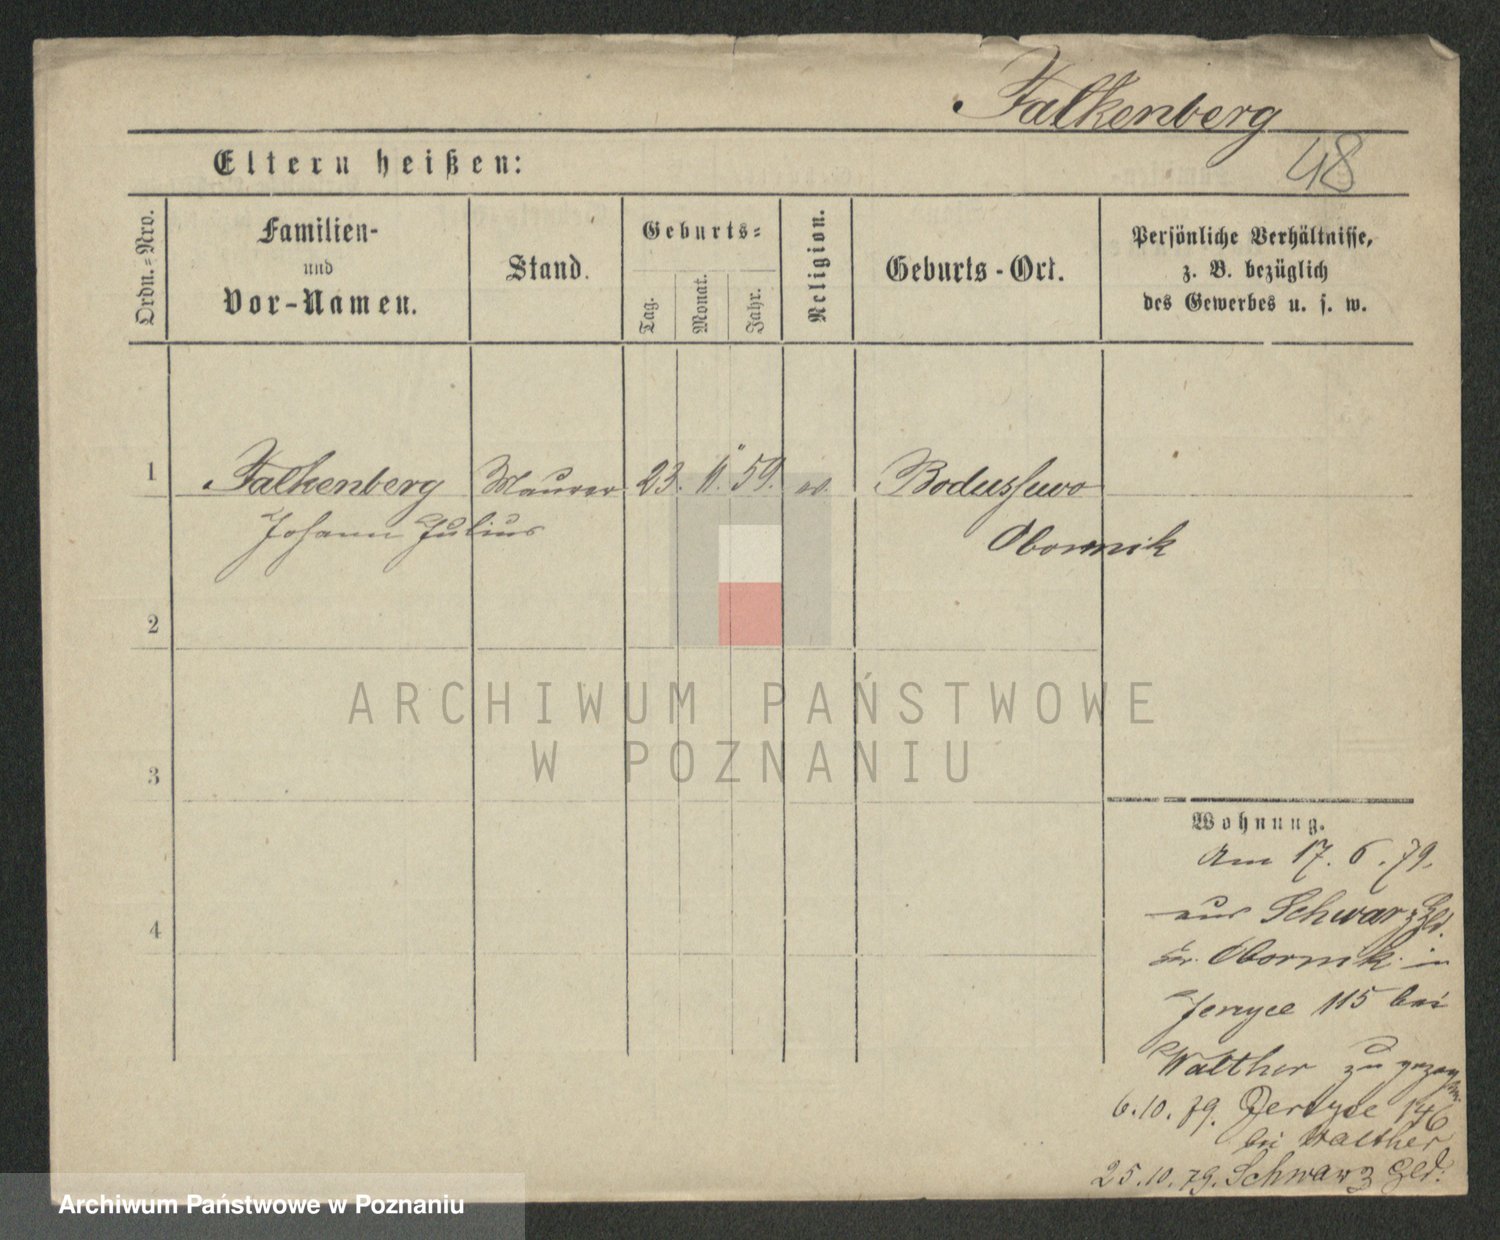 Falkenberg
48
Eltern heißen:
Ordn.=Nro.
Familien-
und
Vor-Namen.
Stand.
Geburts=
Tag.
Monat.
Jahr.
Religion.
Geburts-Ort.
Persönliche Verhältnisse,
z. B. bezüglich
des Gewerbes u. s. w.
1 Falkenberg Maurer 23. 11. 59. ev.
Johann Julius
Obornik
2
3
4
ARCHIWUM PAŃSTWOWE
W POZNANIU
Wohnung.
Am 17. 6. 79.
aus Schwarz
Obornik in
Jerzyce 115 bei
Walther zu
6. 10. 79. Jerzyce 146
bei Walther
25. 10. 79. Schwarz
Archiwum Państwowe w Poznaniu